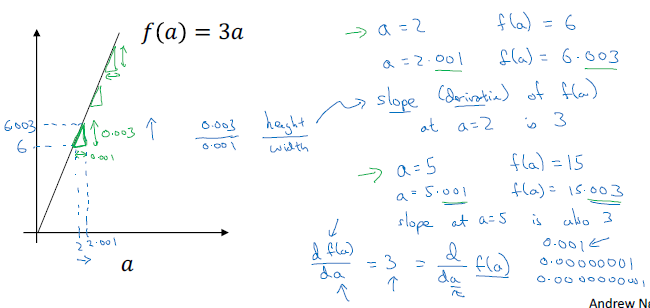 f(a) = 3a
6.003
6
0.003
0.001
2 2.001
a
0.003 height
0.001 width
→ a = 2 f(a) = 6
a = 2.001 f(a) = 6.003
slope (derivative) of f(a)
at a = 2 is 3
→ a = 5 f(a) = 15
a = 5.001 f(a) = 15.003
slope at a = 5 is also 3
d f(a) / da = 3 = d / da f(a)
0.001 ←
0.00000001
0.0000000001
Andrew N